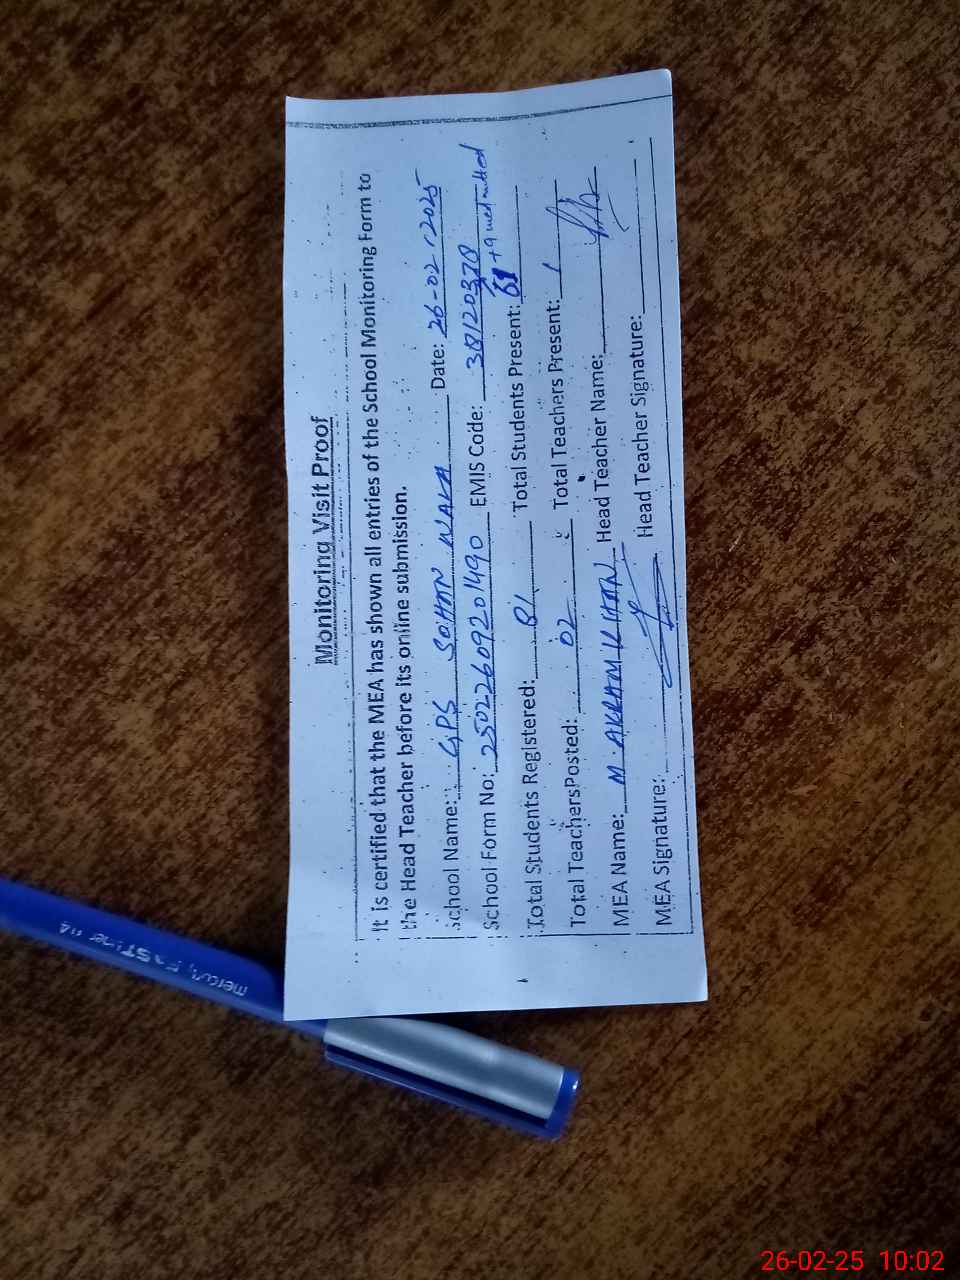 Monitoring Visit Proof
It is certified that the MEA has shown all entries of the School Monitoring Form to
the Head Teacher before its online submission.
School Name: GPS SOHAN WALA Date: 26-02-2025
School Form No: 25022609201490 EMIS Code: 38120378
Total Students Registered: 81 Total Students Present: 61 +9
Total TeachersPosted: 02 Total Teachers Present: 1
MEA Name: M. AKRAM KHAN Head Teacher Name:
MEA Signature: Head Teacher Signature:
mercury FASTliner
26-02-25 10:02